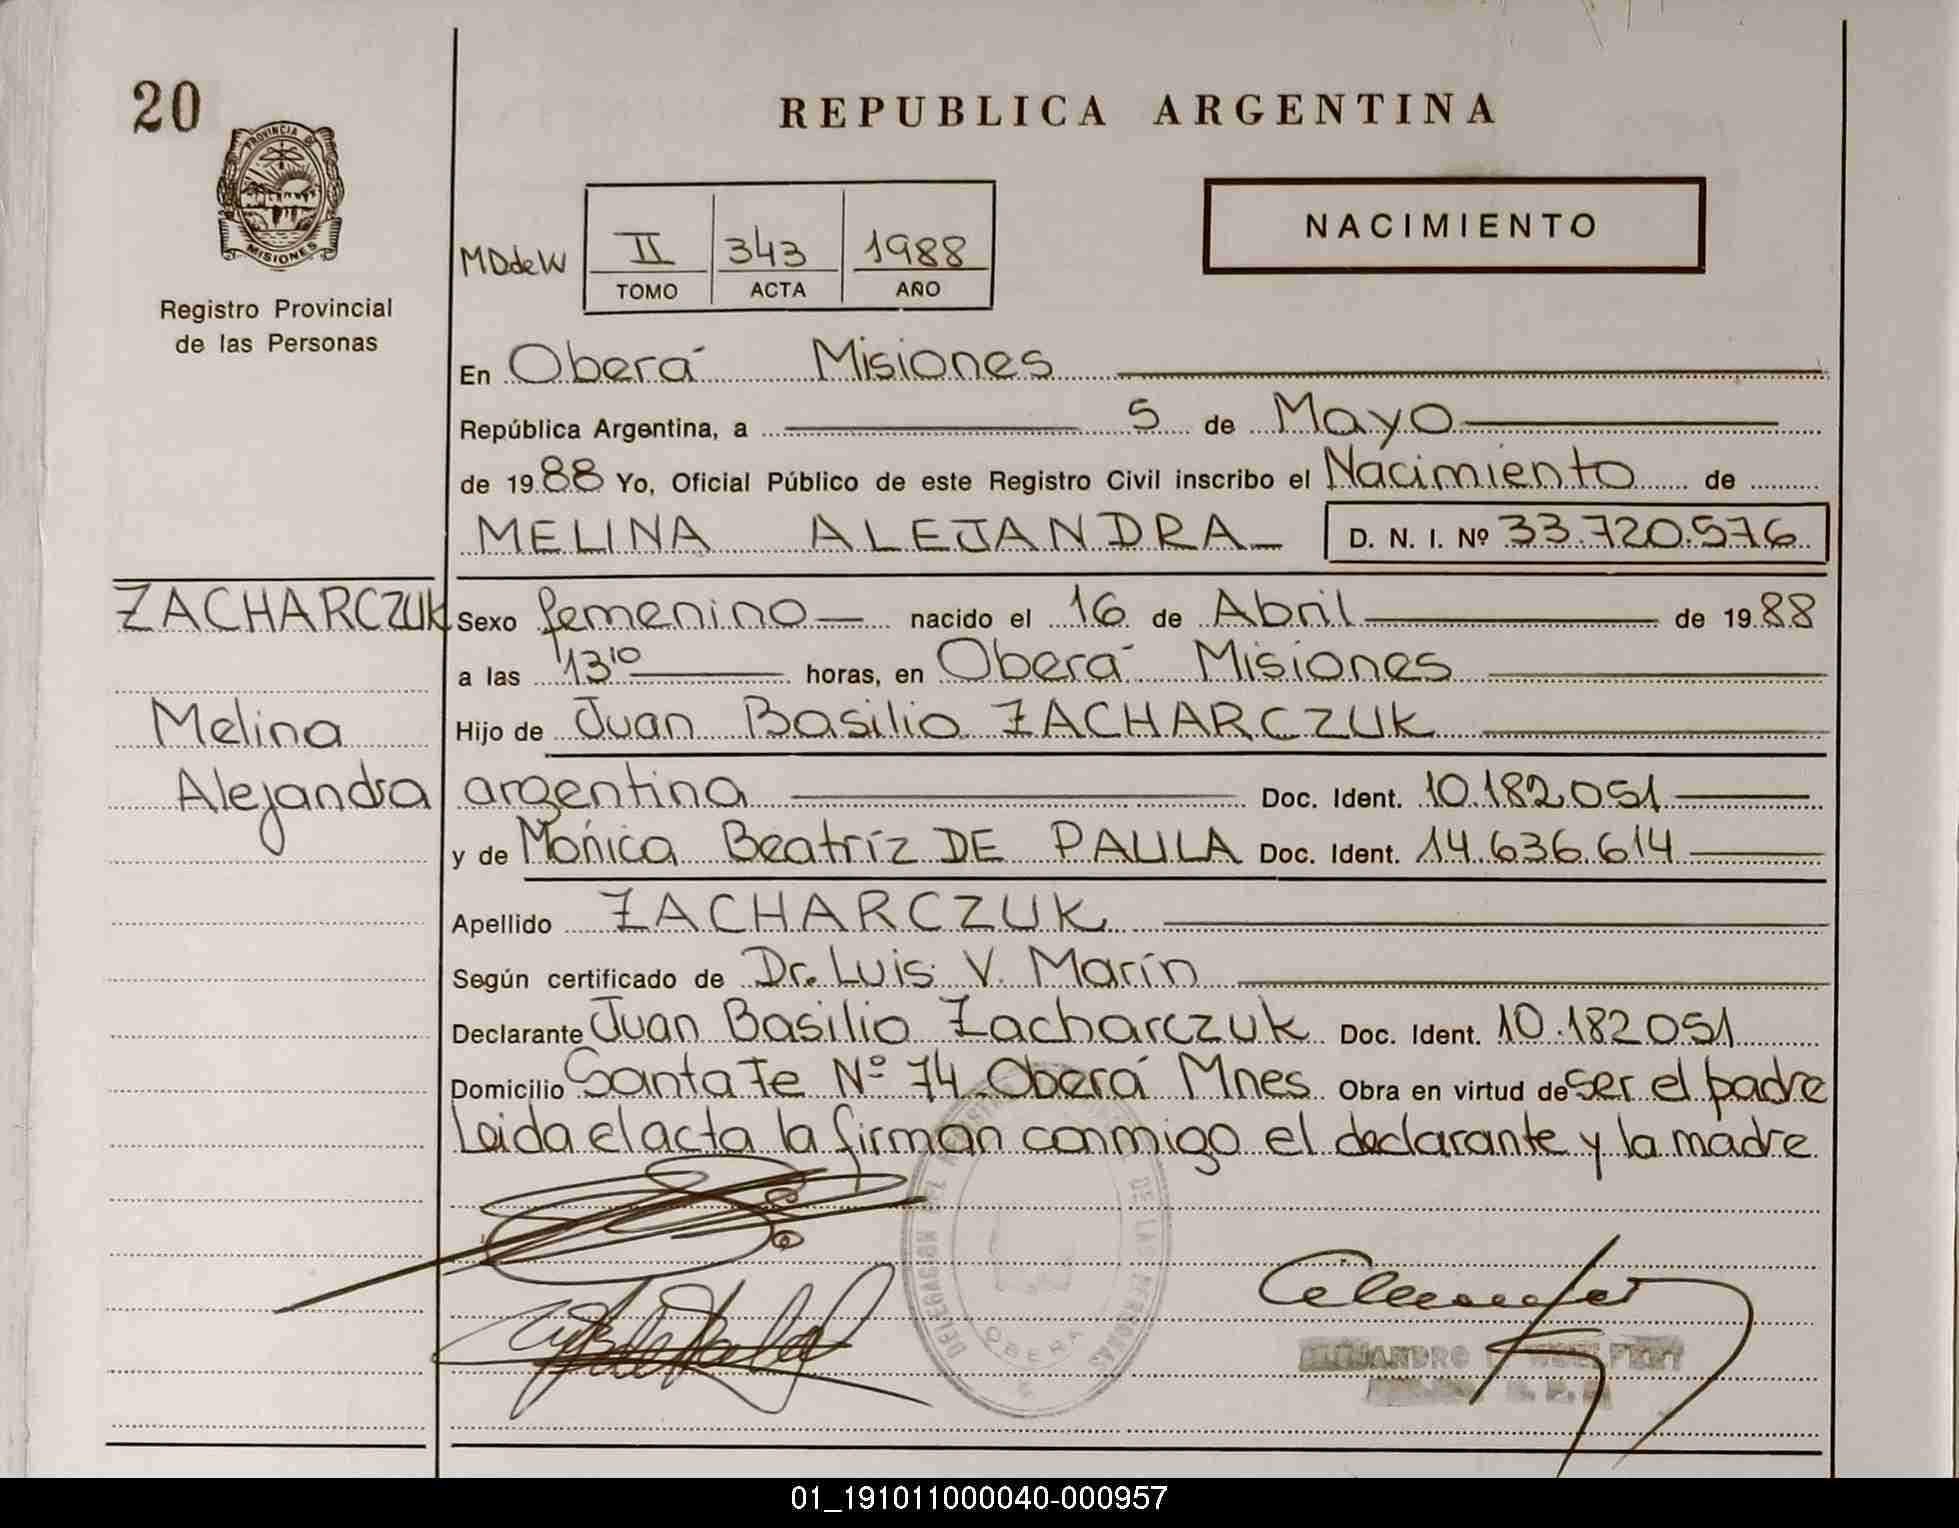 20
PROVINCIA DE
MISIONES
Registro Provincial
de las Personas
REPUBLICA ARGENTINA
NACIMIENTO
MDdeW II 343 1988
TOMO ACTA AÑO
En Oberá Misiones
República Argentina, a 5 de Mayo
de 1988 Yo, Oficial Público de este Registro Civil inscribo el Nacimiento de
MELINA ALEJANDRA D. N. I. Nº 33.720.576
ZACHARCZUK
Melina
Alejandra
Sexo femenino nacido el 16 de Abril de 1988
a las 13¹⁰ horas, en Oberá Misiones
Hijo de Juan Basilio ZACHARCZUK
argentina Doc. Ident. 10.182.051
y de Mónica Beatríz DE PAULA Doc. Ident. 14.636.614
Apellido ZACHARCZUK
Según certificado de Dr. Luis V. Marín
Declarante Juan Basilio Zacharczuk Doc. Ident. 10.182051
Domicilio Santa Fe Nº 74 Oberá Mnes Obra en virtud de ser el padre
Leida el acta la firman conmigo el declarante y la madre
DELEGACION DEL DE LAS PERSONAS
OBERA
ALEJANDRO
01_191011000040-000957